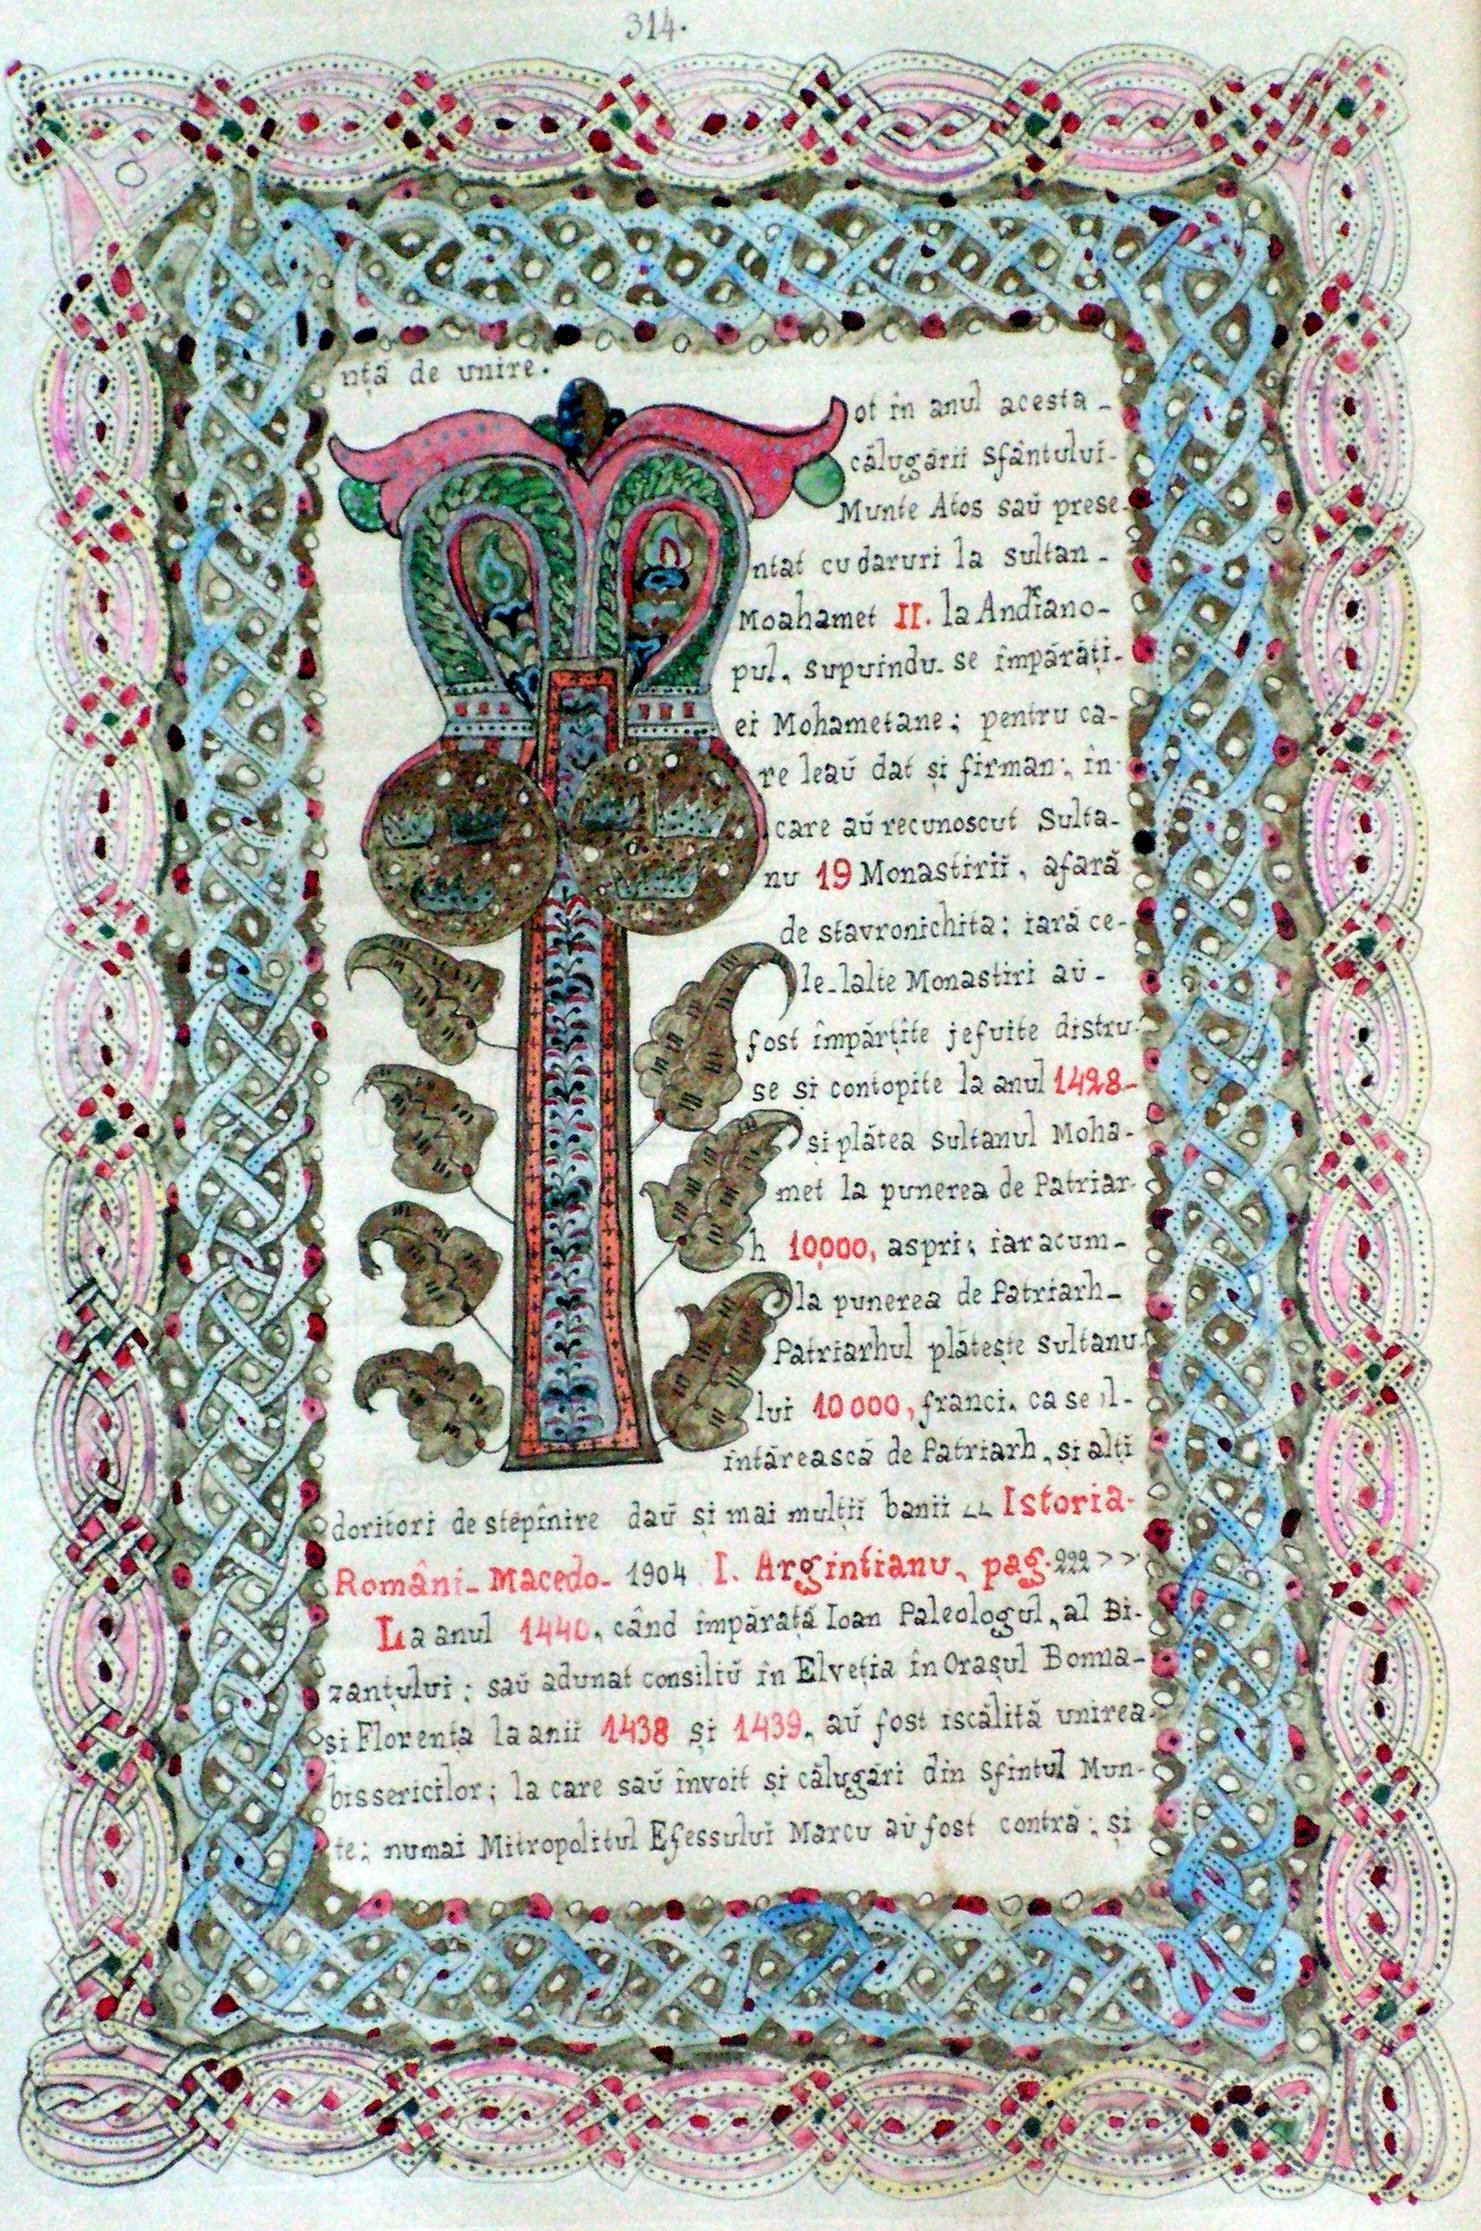 314.
nță de unire.
Tot în anul acesta-
călugării sfântuluĭ-
Munte Atos saŭ prese-
ntat cu daruri la sultan-
Moahamet II. la Andriano-
pul, supuindu-se împărăți-
ei Mohametane; pentru ca-
re leaŭ dat și firman; în-
care aŭ recunoscut Sulta-
nu 19 Monastirii, afară
de stavronichita; iară ce-
le-lalte Monastiri aŭ-
fost împărțite jefuite distru-
se și contopite la anul 1428-
și plătea sultanul Moha-
met la punerea de Patriar-
h 10,000, aspri; iar acum-
la punerea de Patriarh-
Patriarhul plătește sultanu-
lui 10000, franci. ca se îl-
întărească de Patriarh, și alți
doritori de stepînire daŭ și mai mulții banii << Istoria-
Români-Macedo- 1904 I. Argintianu, pag. 222 >>
La anul 1440, când împărată Ioan Paleologul, al Bi-
zanțului; saŭ adunat consiliŭ în Elveția în Orașul Bonna-
și Florența la anii 1438 și 1439, aŭ fost iscălită unirea-
bissericilor; la care saŭ învoit și călugări din sfîntul Mun-
te; numai Mitropolitul Efessuluĭ Marcu aŭ fost contră; și